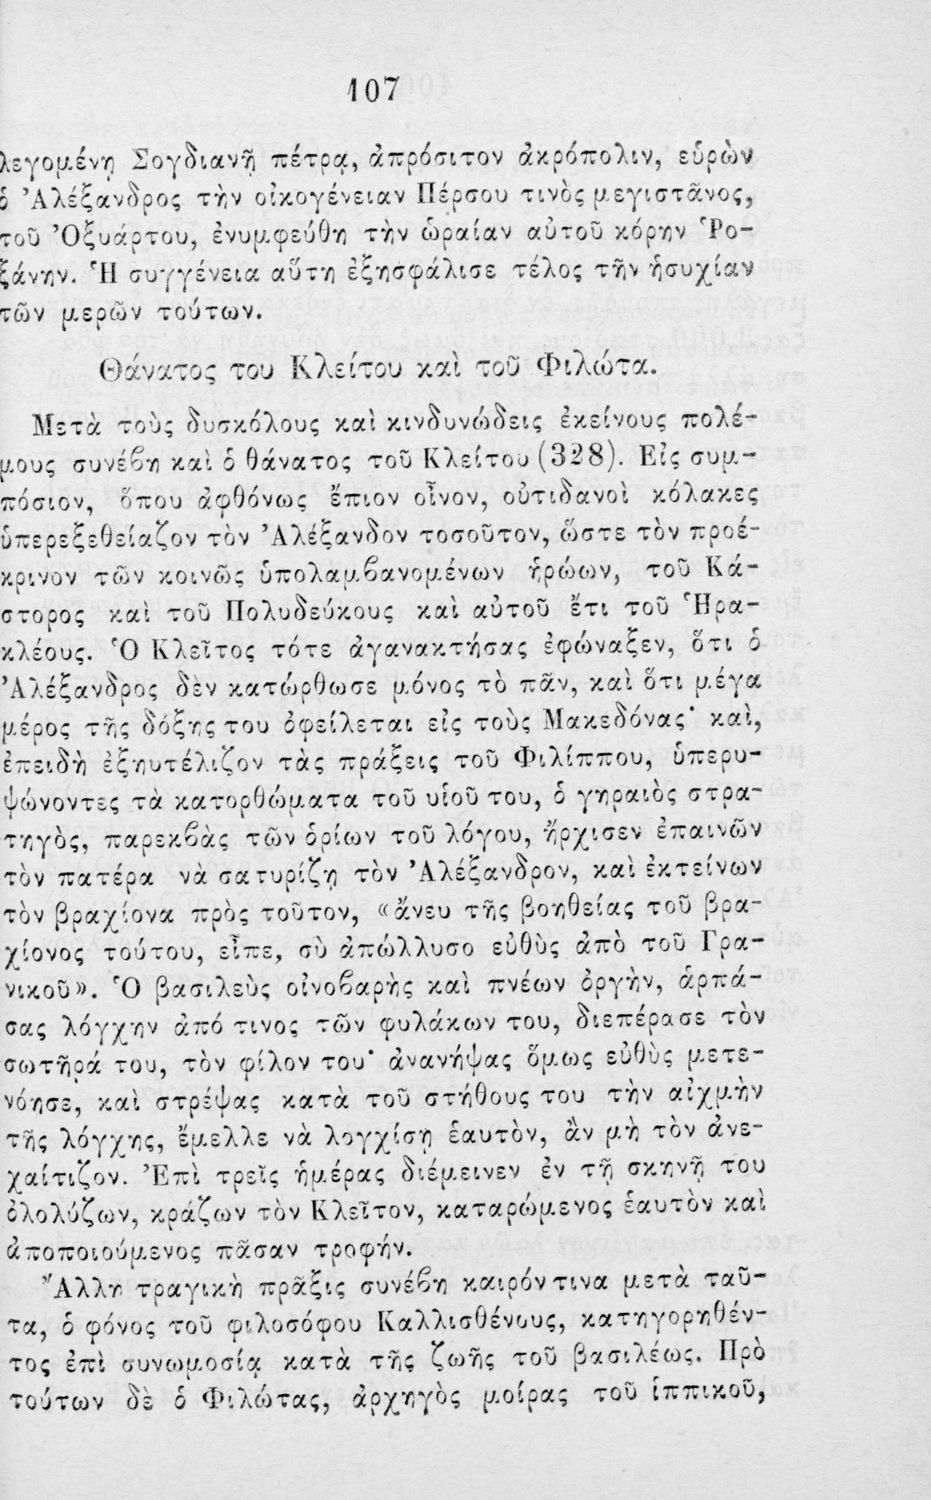 107
λεγομένῃ Σογδιανῇ πέτρᾳ, ἀπρόσιτον ἀκρόπολιν, εὑρὼν
ὁ Ἀλέξανδρος τὴν οἰκογένειαν Πέρσου τινὸς μεγιστᾶνος,
τοῦ Ὀξυάρτου, ἐνυμφεύθη τὴν ὡραίαν αὐτοῦ κόρην Ῥο-
ξάνην. Ἡ συγγένεια αὕτη ἐξησφάλισε τέλος τῆν ἡσυχίαν
τῶν μερῶν τούτων.
Θάνατος του Κλείτου καὶ τοῦ Φιλώτα.
Μετὰ τοὺς δυσκόλους καὶ κινδυνώδεις ἐκείνους πολέ-
μους συνέβη καὶ ὁ θάνατος τοῦ Κλείτου (328). Εἰς συμ-
πόσιον, ὅπου ἀφθόνως ἔπιον οἶνον, οὐτιδανοὶ κόλακες
ὑπερεξεθείαζον τὸν Ἀλέξανδον τοσοῦτον, ὥστε τὸν προέ-
κρινον τῶν κοινῶς ὑπολαμβανομένων ἡρώων, τοῦ Κά-
στορος καὶ τοῦ Πολυδεύκους καὶ αὐτοῦ ἔτι τοῦ Ἡρα-
κλέους. Ὁ Κλεῖτος τότε ἀγανακτήσας ἐφώναξεν, ὅτι ὁ
Ἀλέξανδρος δὲν κατώρθωσε μόνος τὸ πᾶν, καὶ ὅτι μέγα
μέρος τῆς δόξης του ὀφείλεται εἰς τοὺς Μακεδόνας· καὶ,
ἐπειδὴ ἐξηυτέλιζον τὰς πράξεις τοῦ Φιλίππου, ὑπερυ-
ψώνοντες τὰ κατορθώματα τοῦ υἱοῦ του, ὁ γηραιὸς στρα-
τηγὸς, παρεκβὰς τῶν ὁρίων τοῦ λόγου, ἤρχισεν ἐπαινῶν
τὸν πατέρα νὰ σατυρίζῃ τὸν Ἀλέξανδρον, καὶ ἐκτείνων
τὸν βραχίονα πρὸς τοῦτον, «ἄνευ τῆς βοηθείας τοῦ βρα-
χίονος τούτου, εἶπε, σὺ ἀπώλλυσο εὐθὺς ἀπὸ τοῦ Γρα-
νικοῦ». Ὁ βασιλεὺς οἰνοβαρὴς καὶ πνέων ὀργὴν, ἁρπά-
σας λόγχην ἀπό τινος τῶν φυλάκων του, διεπέρασε τὸν
σωτῆρά του, τὸν φίλον του· ἀνανήψας ὅμως εὐθὺς μετε-
νόησε, καὶ στρέψας κατὰ τοῦ στήθους του τὴν αἰχμὴν
τῆς λόγχης, ἔμελλε νὰ λογχίσῃ ἑαυτὸν, ἂν μὴ τὸν ἀνε-
χαίτιζον. Ἐπὶ τρεῖς ἡμέρας διέμεινεν ἐν τῇ σκηνῇ του
ὀλολύζων, κράζων τὸν Κλεῖτον, καταρώμενος ἑαυτὸν καὶ
ἀποποιούμενος πᾶσαν τροφήν.
Ἄλλη τραγικὴ πρᾶξις συνέβη καιρόν τινα μετὰ ταῦ-
τα, ὁ φόνος τοῦ φιλοσόφου Καλλισθένους, κατηγορηθέν-
τος ἐπὶ συνωμοσίᾳ κατὰ τῆς ζωῆς τοῦ βασιλέως. Πρὸ
τούτων δὲ ὁ Φιλώτας, ἀρχηγὸς μοίρας τοῦ ἱππικοῦ,